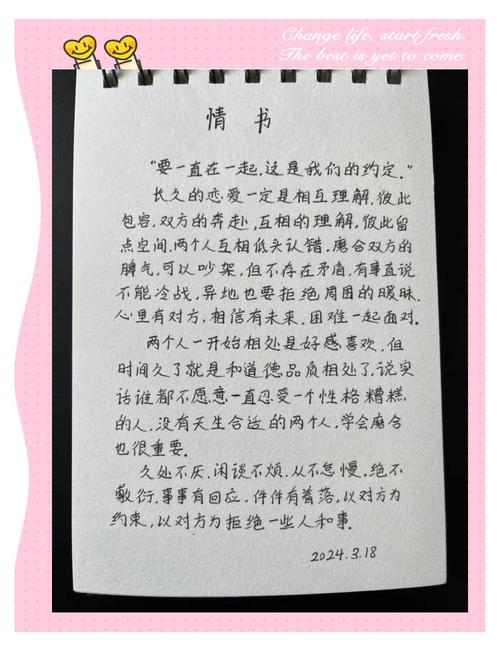 Change life, start fresh.
The best is yet to come.
情 书
"要一直在一起,这是我们的约定."
长久的恋爱一定是相互理解,彼此
包容,双方的奔赴,互相的理解,彼此留
点空间,两个人互相低头认错,磨合双方的
脾气,可以吵架,但不存在矛盾,有事直说
不能冷战,异地也要拒绝周围的暧昧.
心里有对方,相信有未来,困难一起面对.
两个人一开始相处是好感喜欢,但
时间久了就是和道德品质相处了,说实
话谁都不愿意一直忍受一个性格糟糕
的人,没有天生合适的两个人,学会磨合
也很重要.
久处不厌,闲谈不烦,从不怠慢,绝不
敷衍,事事有回应,件件有着落,以对方为
约束,以对方为拒绝一些人和事.
2024.3.18